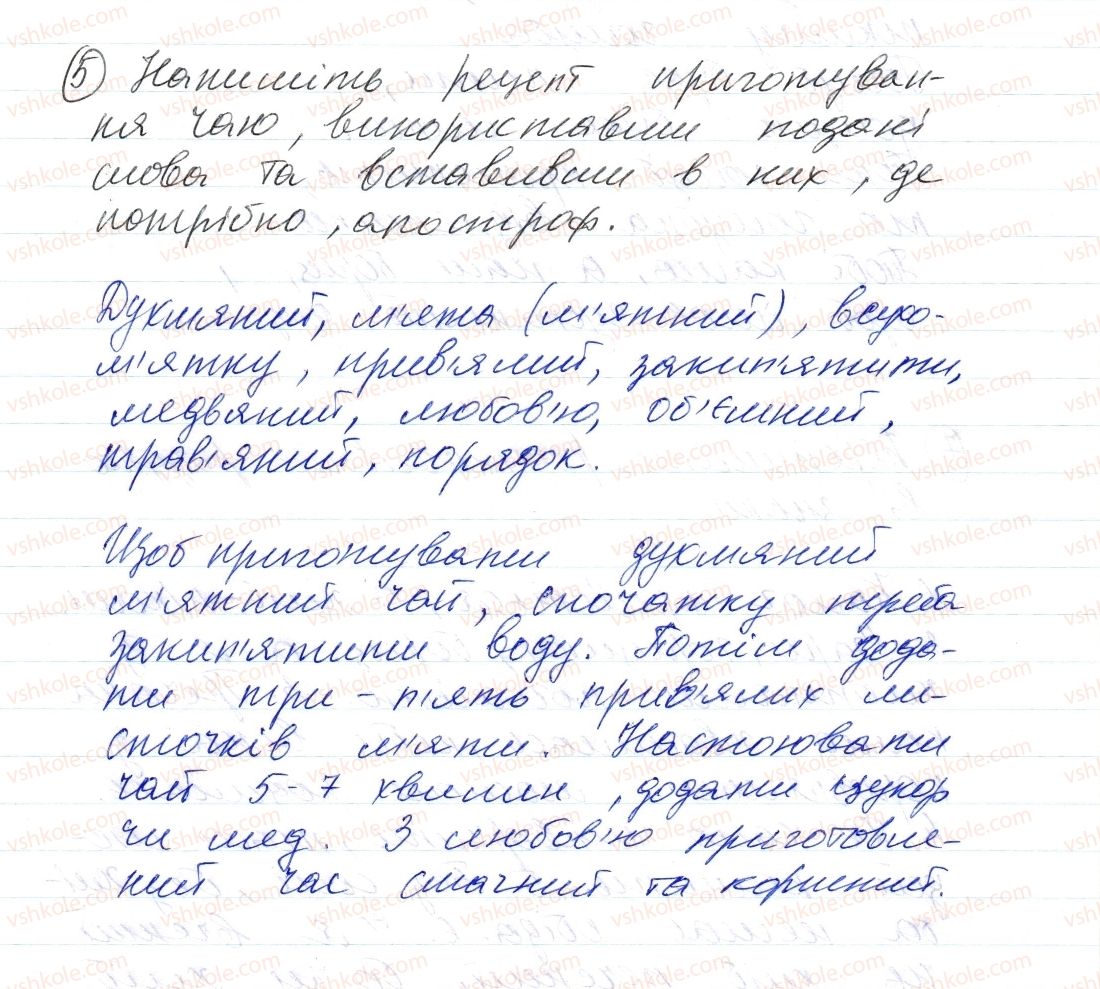 5 Напишіть рецепт приготуван-
ня чаю, використавши подані
слова та вставивши в них, де
потрібно, апостроф.
Духмяний, м'ята (м'ятний), всухо-
м'ятку, прив'ялий, закип'ятити,
медвяний, любов'ю, об'ємний,
трав'яний, порядок.
Щоб приготувати духмяний
м'ятний чай, спочатку треба
закип'ятити воду. Потім дода-
ти три - п'ять прив'ялих ли-
сточків м'яти. Настоювати
чай 5-7 хвилин, додати цукор
чи мед. З любов'ю приготовле-
ний час смачний та корисний.